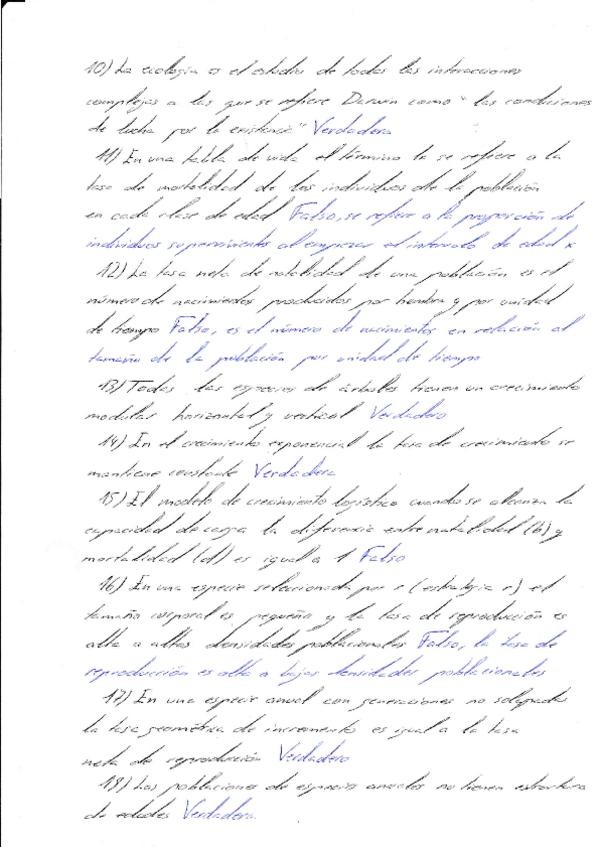 10) La ecología es el estudio de todas las interacciones
complejas a las que se refiere Darwin como "las condiciones
de lucha por la existencia" Verdadera
11) En una tabla de vida el término lx se refiere a la
tasa de mortalidad de los individuos de la población
en cada clase de edad Falso, se refiere a la proporción de
individuos supervivientes al empezar el intervalo de edad x
12) La tasa neta de natalidad de una población es el
número de nacimientos producidos por hembra y por unidad
de tiempo Falso, es el número de nacimientos en relación al
tamaño de la población por unidad de tiempo
13) Todas las especies de árboles tienen un crecimiento
modular horizontal y vertical Verdadero
14) En el crecimiento exponencial la tasa de crecimiento se
mantiene constante Verdadera
15) El modelo de crecimiento logístico cuando se alcanza la
capacidad de carga la diferencia entre natalidad (b) y
mortalidad (d) es igual a 1 Falso
16) En una especie seleccionada por r (estrategia r) el
tamaño corporal es pequeño y la tasa de reproducción es
alta a altas densidades poblacionales Falso, la tasa de
reproducción es alta a bajas densidades poblacionales
17) En una especie anual con generaciones no solapadas
la tasa geométrica de incremento es igual a la tasa
neta de reproducción Verdadero
18) Las poblaciones de especies anuales no tienen estructura
de edades Verdadera